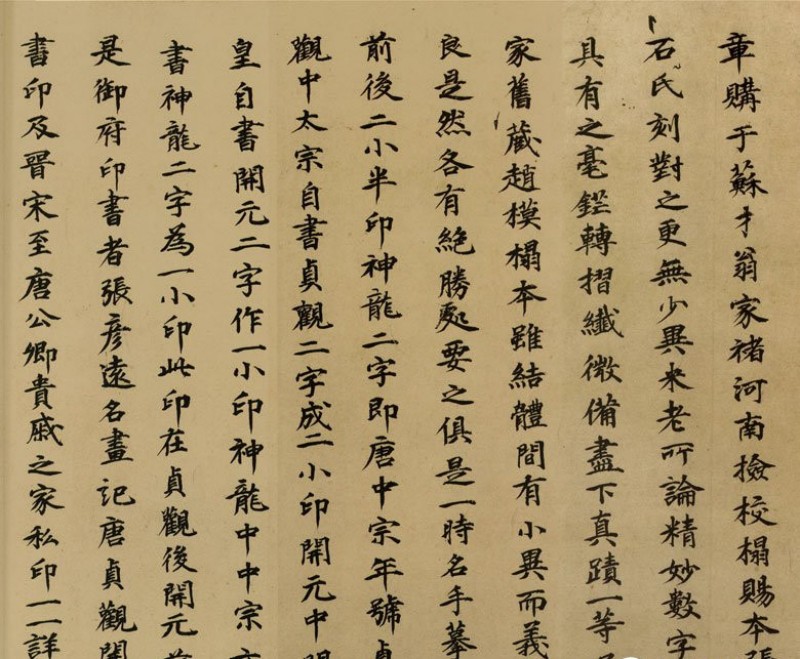 章購于蘇才翁家褚河南撿校榻賜本張
石氏刻對之更無少異米老所論精妙數字
具有之毫鋩轉摺纖微備盡下真蹟一等
家舊藏趙模榻本雖結體間有小異而義
良是然各有絶勝處要之俱是一時名手摹
前後二小半印神龍二字即唐中宗年號貞
觀中太宗自書貞觀二字成二小印開元中
皇自書開元二字作一小印神龍中中宗亦
書神龍二字為一小印此印在貞觀後開元前
是御府印書者張彦遠名畫記唐貞觀開
書印及晋宋至唐公卿貴戚之家私印一一詳